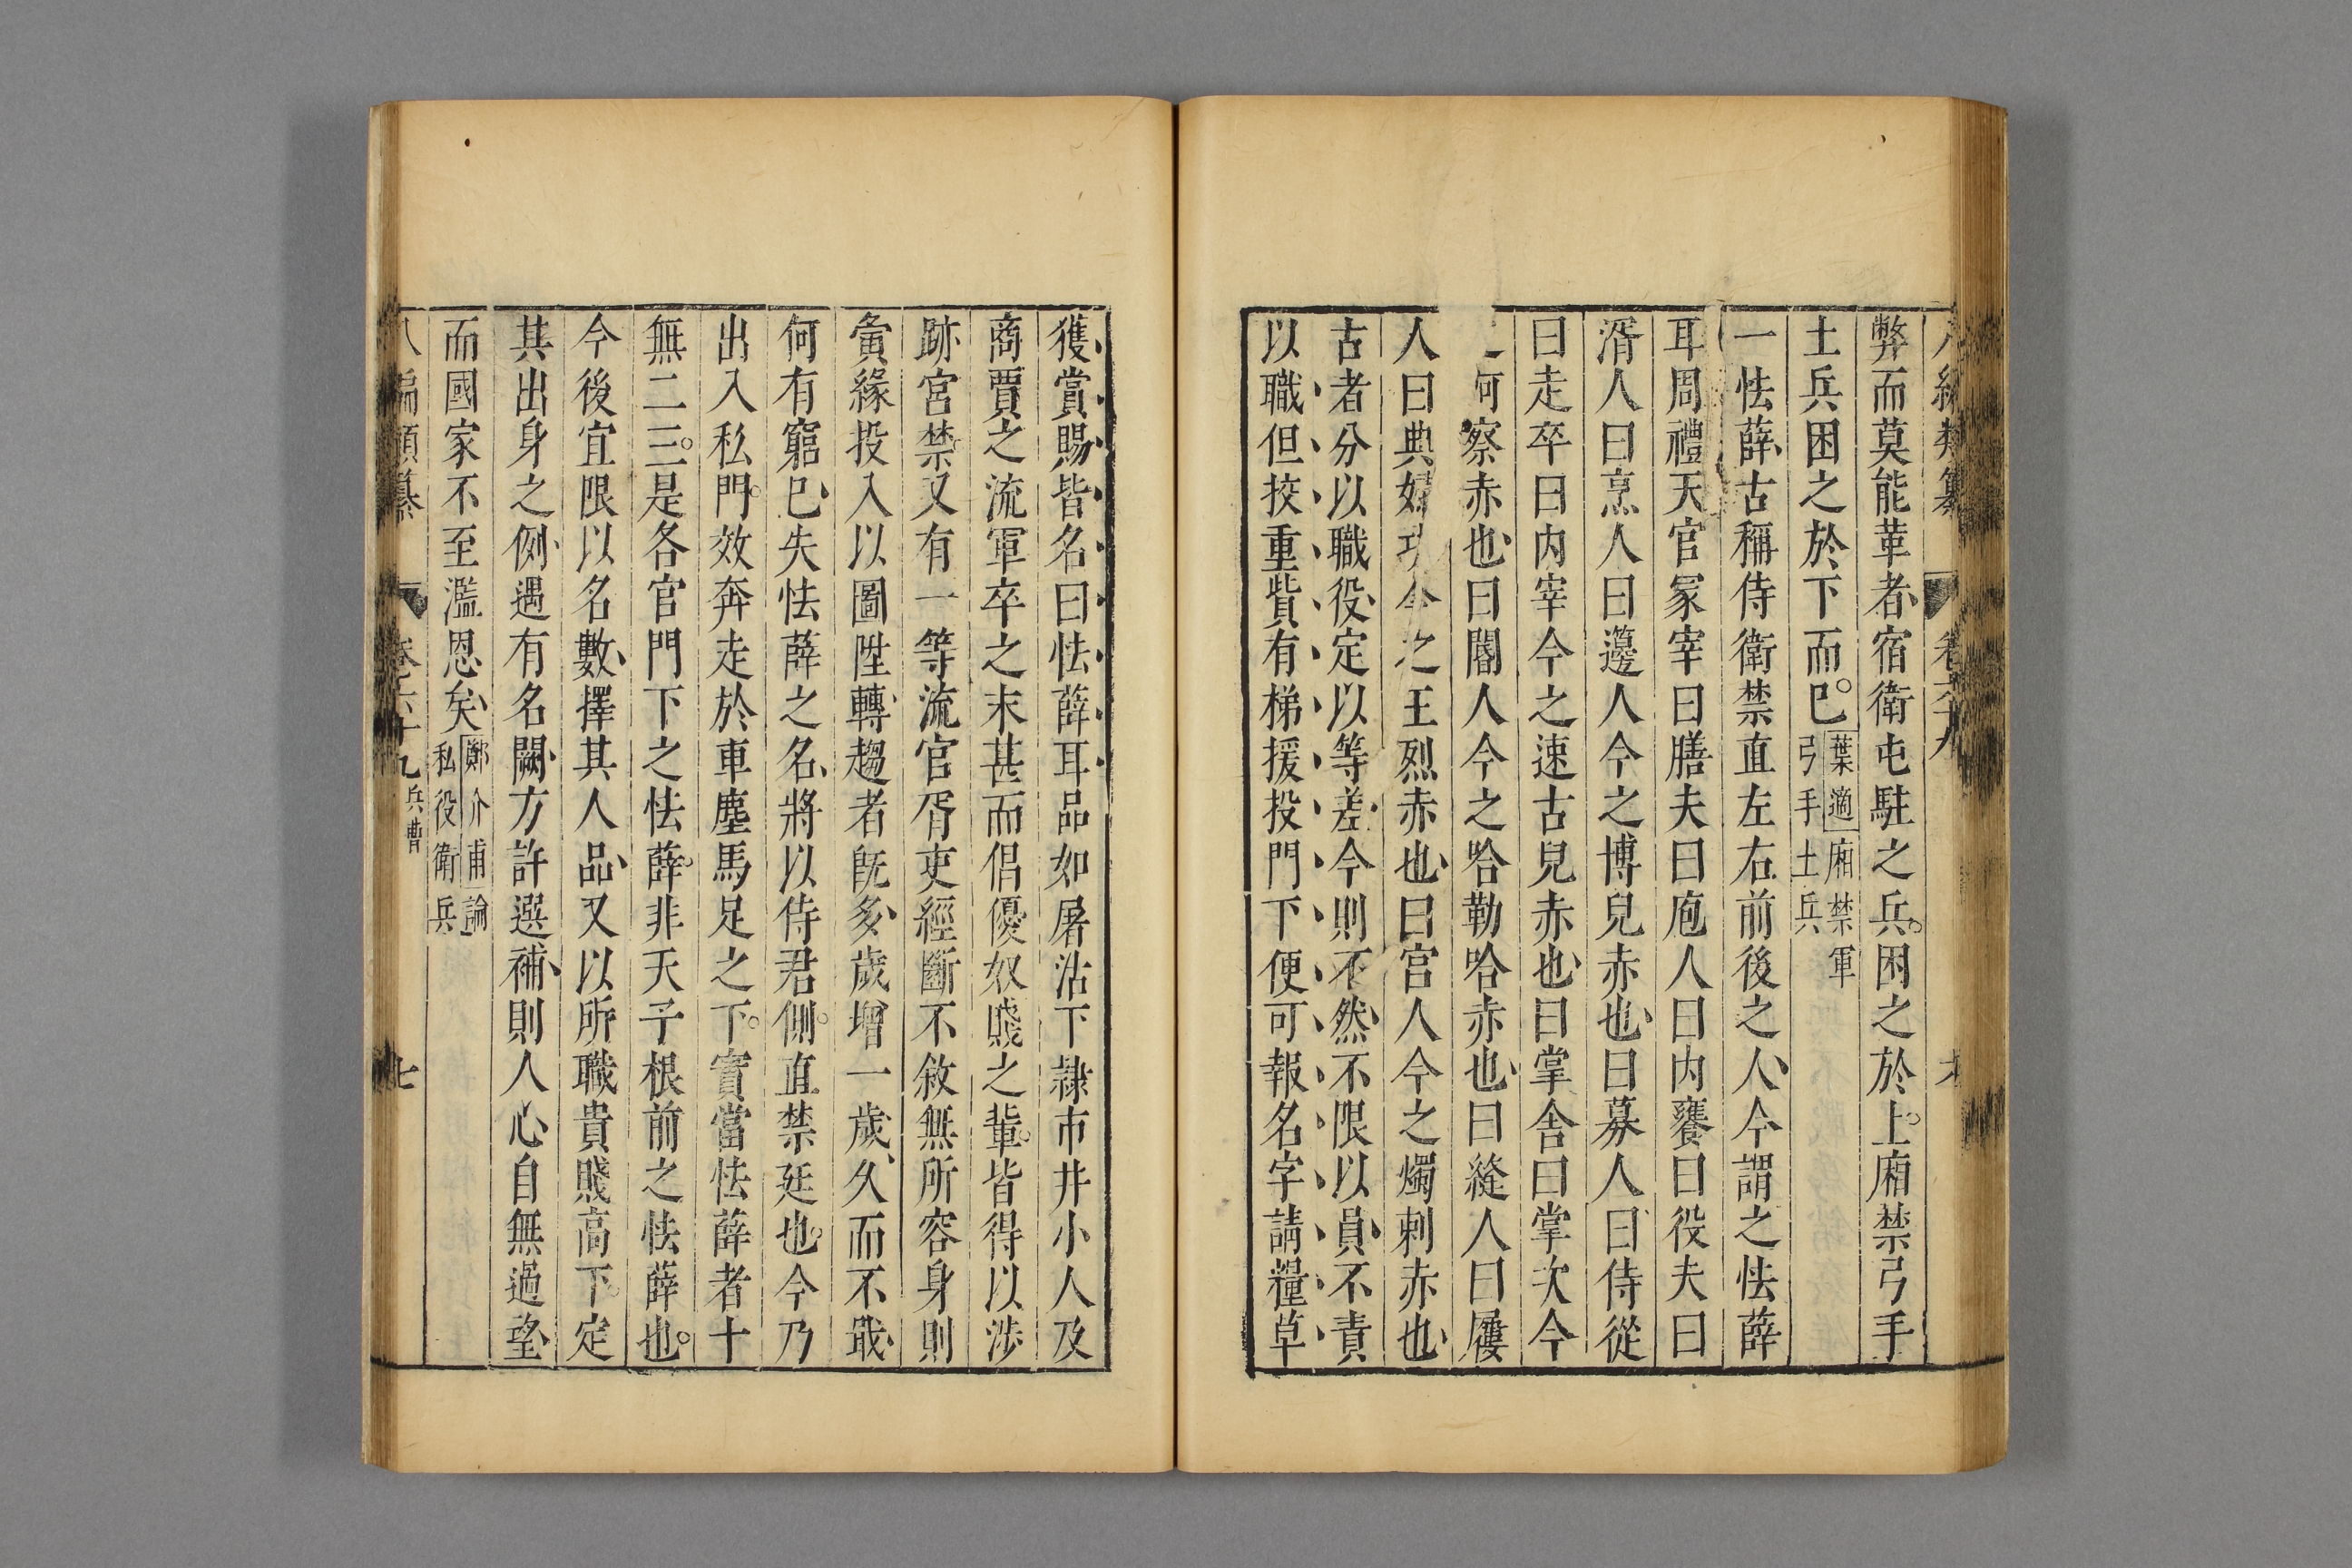 弊而莫能革者宿衛屯駐之兵困之於上廂禁弓手
土兵困之於下而已葉適廂禁軍弓手土兵
一怯薛古稱侍衛禁直左右前後之人今謂之怯薛
耳周禮天官冢宰曰膳夫曰庖人曰内饔曰役夫曰
漘人曰烹人曰籩人今之博兒赤也曰募人曰侍從
曰走卒曰内宰今之速古兒赤也曰掌舍曰掌次今
何察赤也曰閽人今之哈勒哈赤也曰縫人曰屨
人曰典婦功今之王烈赤也曰宫人今之燭剌赤也
古者分以職役定以等差今則不然不限以員不責
以職但挍重貲有梯援投門下便可報名字請糧草
獲賞賜皆名曰怯薛耳品如屠沽下隸市井小人及
商賈之流軍卒之末甚而倡優奴賤之輩皆得以涉
跡宮禁又有一等流官胥吏經斷不敘無所容身則
夤緣投入以圖陞轉趨者既多歲增一歲久而不戢
何有窮已失怯薛之名將以侍君側直禁廷也今乃
出入私門效奔走於車塵馬足之下實當怯薛者十
無二三是各官門下之怯薛非天子根前之怯薛也
今後宜限以名數擇其人品又以所職貴賤高下定
其出身之例遇有名闕方許選補則人心自無過望
而國家不至濫恩矣鄭介甫論私役衛兵
八編類纂 卷六十九 兵曹 七